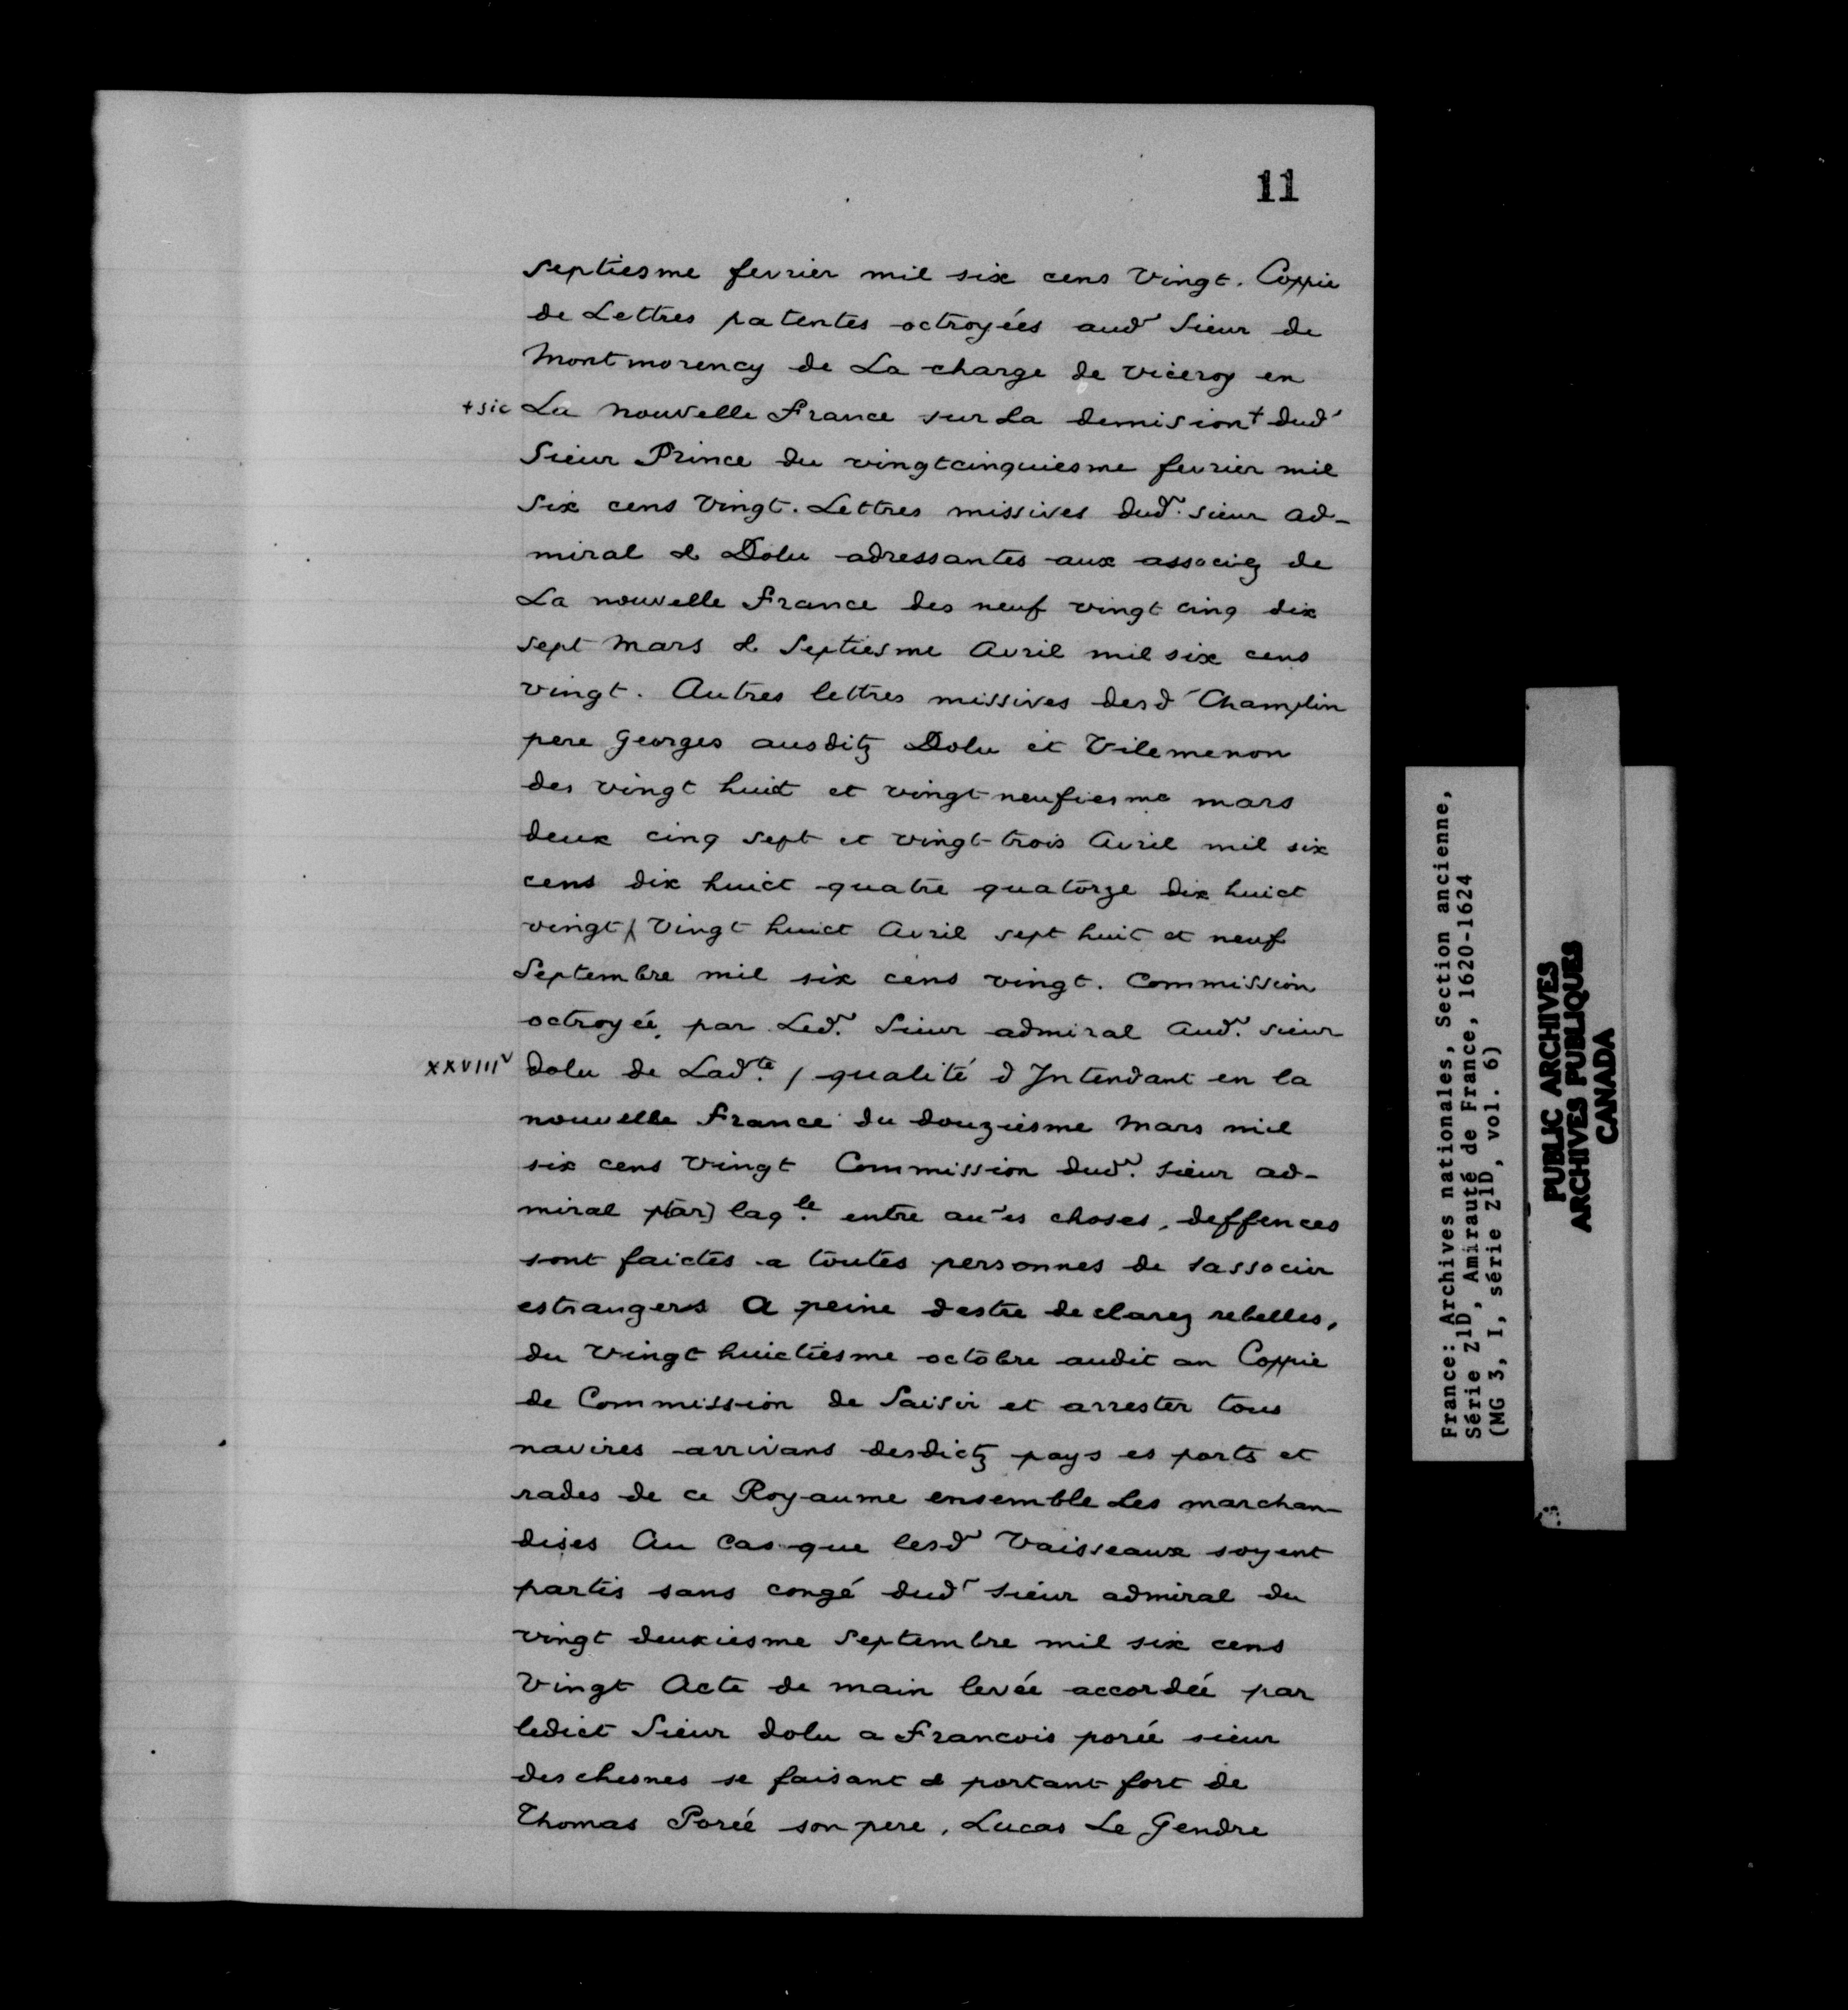 11
septiesme fevrier mil six cens Vingt. Coppie
de Lettres patentes octroyées aud sieur de
Montmorency de La charge de viceroy en
+ sic La nouvelle France sur la demision+ dud
Sieur Prince du vingtcinquiesme fevrier mil
six cens Vingt. Lettres missives dud. sieur ad-
miral & Dolu adressantes aux associez de
La nouvelle France des neuf vingt cinq dix
sept Mars & Septiesme Avril mil six cens
vingt. Autres lettres missives desd Champlin
pere Georges ausditz Dolu et Vilemenon
des vingt huit et vingt neufiesme mars
deux cinq sept et vingt-trois Avril mil six
cens dix huict quatre quatorze dix huict
vingt Vingt huict Avril sept huit et neuf
Septembre mil six cens vingt. Commission
octroyée, par Led. Sieur admiral Aud. sieur
XXVIII v dolu de Lad.te / qualité d Intendant en la
nouvelle France du douziesme Mars mil
six cens Vingt Commission dud. sieur ad-
miral p[ar] laq.le entre au~es choses, deffences
sont faictes a toutes personnes de sassocier
estrangers A peine destre declarez rebelles,
du Vingt huictiesme octobre audit an Coppie
de Commission de Saisir et arrester tous
navires arrivans desdictz pays es ports et
rades de ce Royaume ensemble Les marchan-
dises Au Cas que lesd Vaisseaux soyent
partis sans congé dud sieur admiral du
vingt deuxiesme Septembre mil six cens
Vingt Acte de main levée accordée par
ledict Sieur dolu a Francois porée sieur
des chesnes se faisant & portant fort de
Thomas Porée son pere, Lucas Le Gendre
France: Archives nationales, Section ancienne,
Série Z1D, Amirauté de France, 1620-1624
(MG 3, I, série Z1D, vol. 6)
PUBLIC ARCHIVES
ARCHIVES PUBLIQUES
CANADA